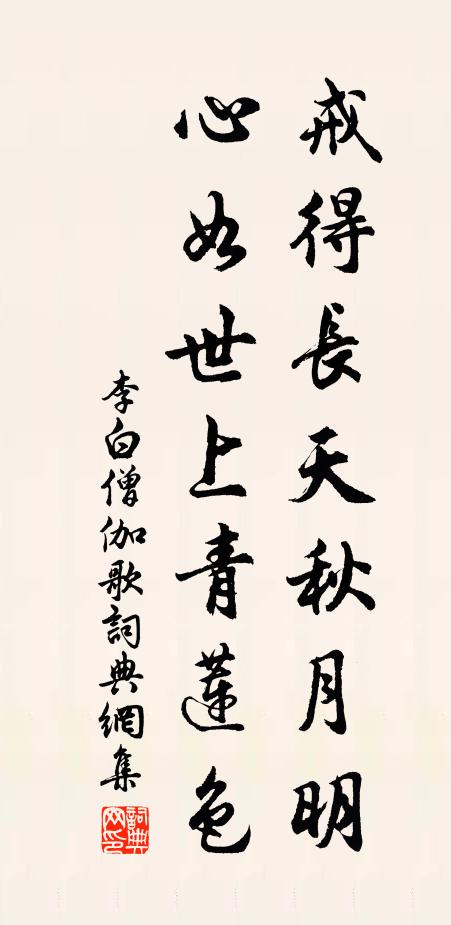 戒得長天秋月明
心如世上青蓮色
李白僧伽歌詞典網集
詞典網印